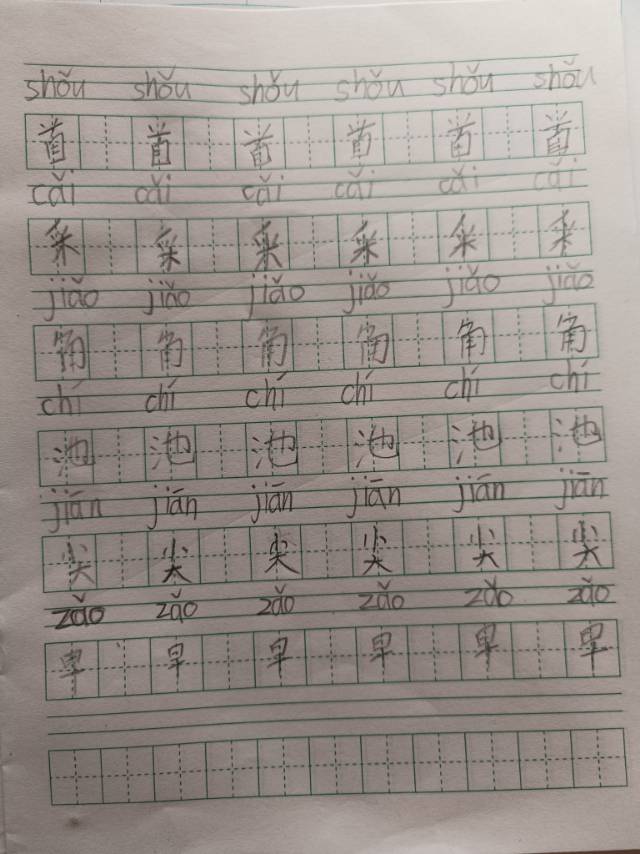 shǒu shǒu shǒu shǒu shǒu shǒu
首 首 首 首 首 首
cǎi cǎi cǎi cǎi cǎi cǎi
采 采 采 采 采 采
jiǎo jiǎo jiǎo jiǎo jiǎo jiǎo
角 角 角 角 角 角
chí chí chí chí chí chí
池 池 池 池 池 池
jiān jiān jiān jiān jiān jiān
尖 尖 尖 尖 尖 尖
zǎo zǎo zǎo zǎo zǎo zǎo
早 早 早 早 早 早